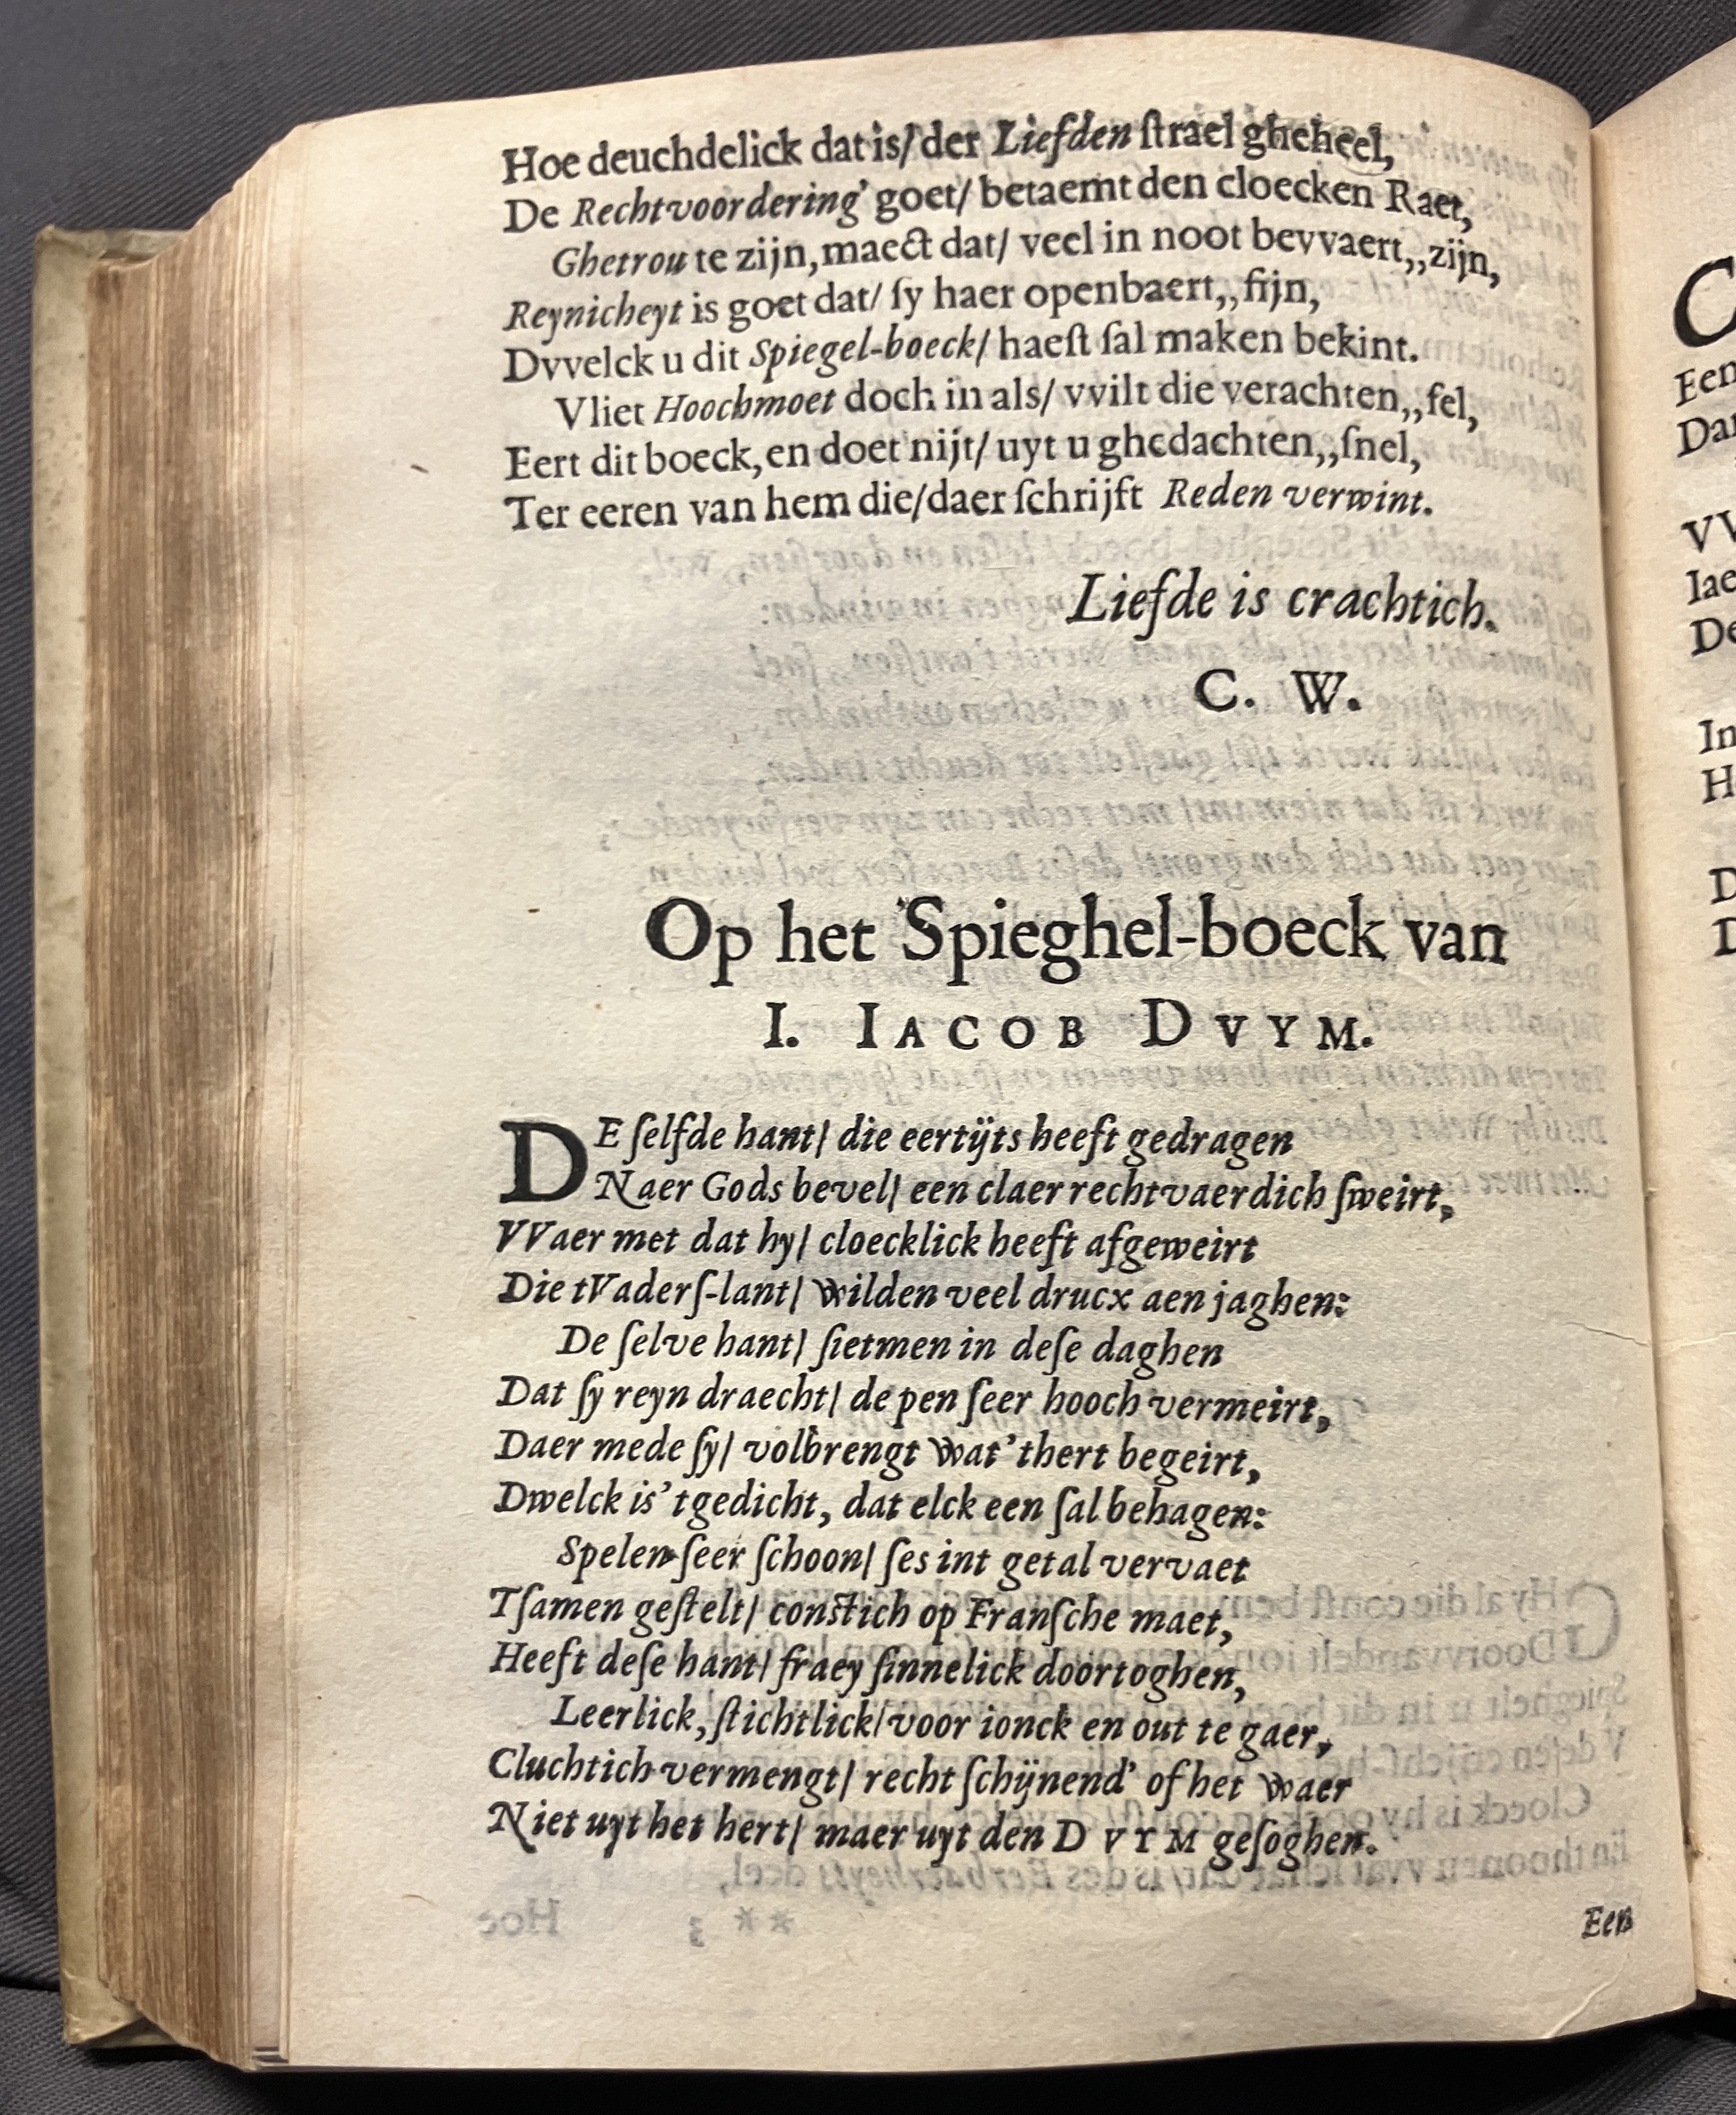 Hoe deuchdelick dat is/ der Liefden ſtrael gheheel,
De Rechtvoordering' goet/ betaemt den cloecken Raet,
Ghetrou te zijn, maect dat/ veel in noot bevvaert,,zijn,
Reynicheyt is goet dat/ ſy haer openbaert,,fijn,
Dvvelck u dit Spiegel-boeck/ haeſt ſal maken bekint.
Vliet Hoochmoet doch in als/ vvilt die verachten,,fel,
Eert dit boeck, en doet nijt/ uyt u ghedachten,,ſnel,
Ter eeren van hem die/ daer ſchrijft Reden verwint.
Liefde is crachtich.
C. W.
Op het Spieghel-boeck van
I. IACOB DVYM.
DE ſelfde hant/ die eertijts heeft gedragen
Naer Gods bevel/ een claer rechtvaerdich ſweirt,
VVaer met dat hy/ cloecklick heeft afgeweirt
Die tVaderſ-lant/ wilden veel drucx aen jaghen:
De ſelve hant/ ſietmen in deſe daghen
Dat ſy reyn draecht/ de pen ſeer hooch vermeirt,
Daer mede ſy/ volbrengt wat'thert begeirt,
Dwelck is'tgedicht, dat elck een ſal behagen:
Spelen ſeer ſchoon/ ſes int getal vervaet
Tſamen geſtelt/ conſtich op Franſche maet,
Heeft deſe hant/ fraey ſinnelick doortoghen,
Leerlick, ſtichtlick/ voor ionck en out te gaer,
Cluchtich vermengt/ recht ſchijnend' of het waer
Niet uyt het hert/ maer uyt den DVYM geſoghen.
Een
C
Een
VV
Iae
De
In
D